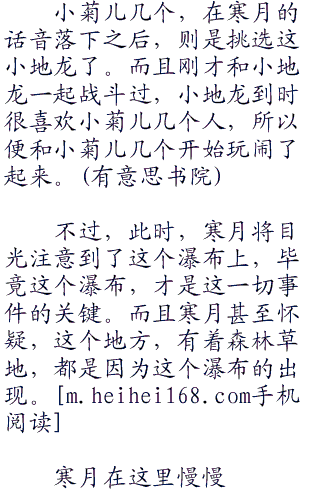 小菊儿几个，在寒月的
话音落下之后，则是挑选这
小地龙了。而且刚才和小地
龙一起战斗过，小地龙到时
很喜欢小菊儿几个人，所以
便和小菊儿几个开始玩闹了
起来。(有意思书院)
不过，此时，寒月将目
光注意到了这个瀑布上，毕
竟这个瀑布，才是这一切事
件的关键。而且寒月甚至怀
疑，这个地方，有着森林草
地，都是因为这个瀑布的出
现。[m.heihei168.com手机
阅读]
寒月在这里慢慢